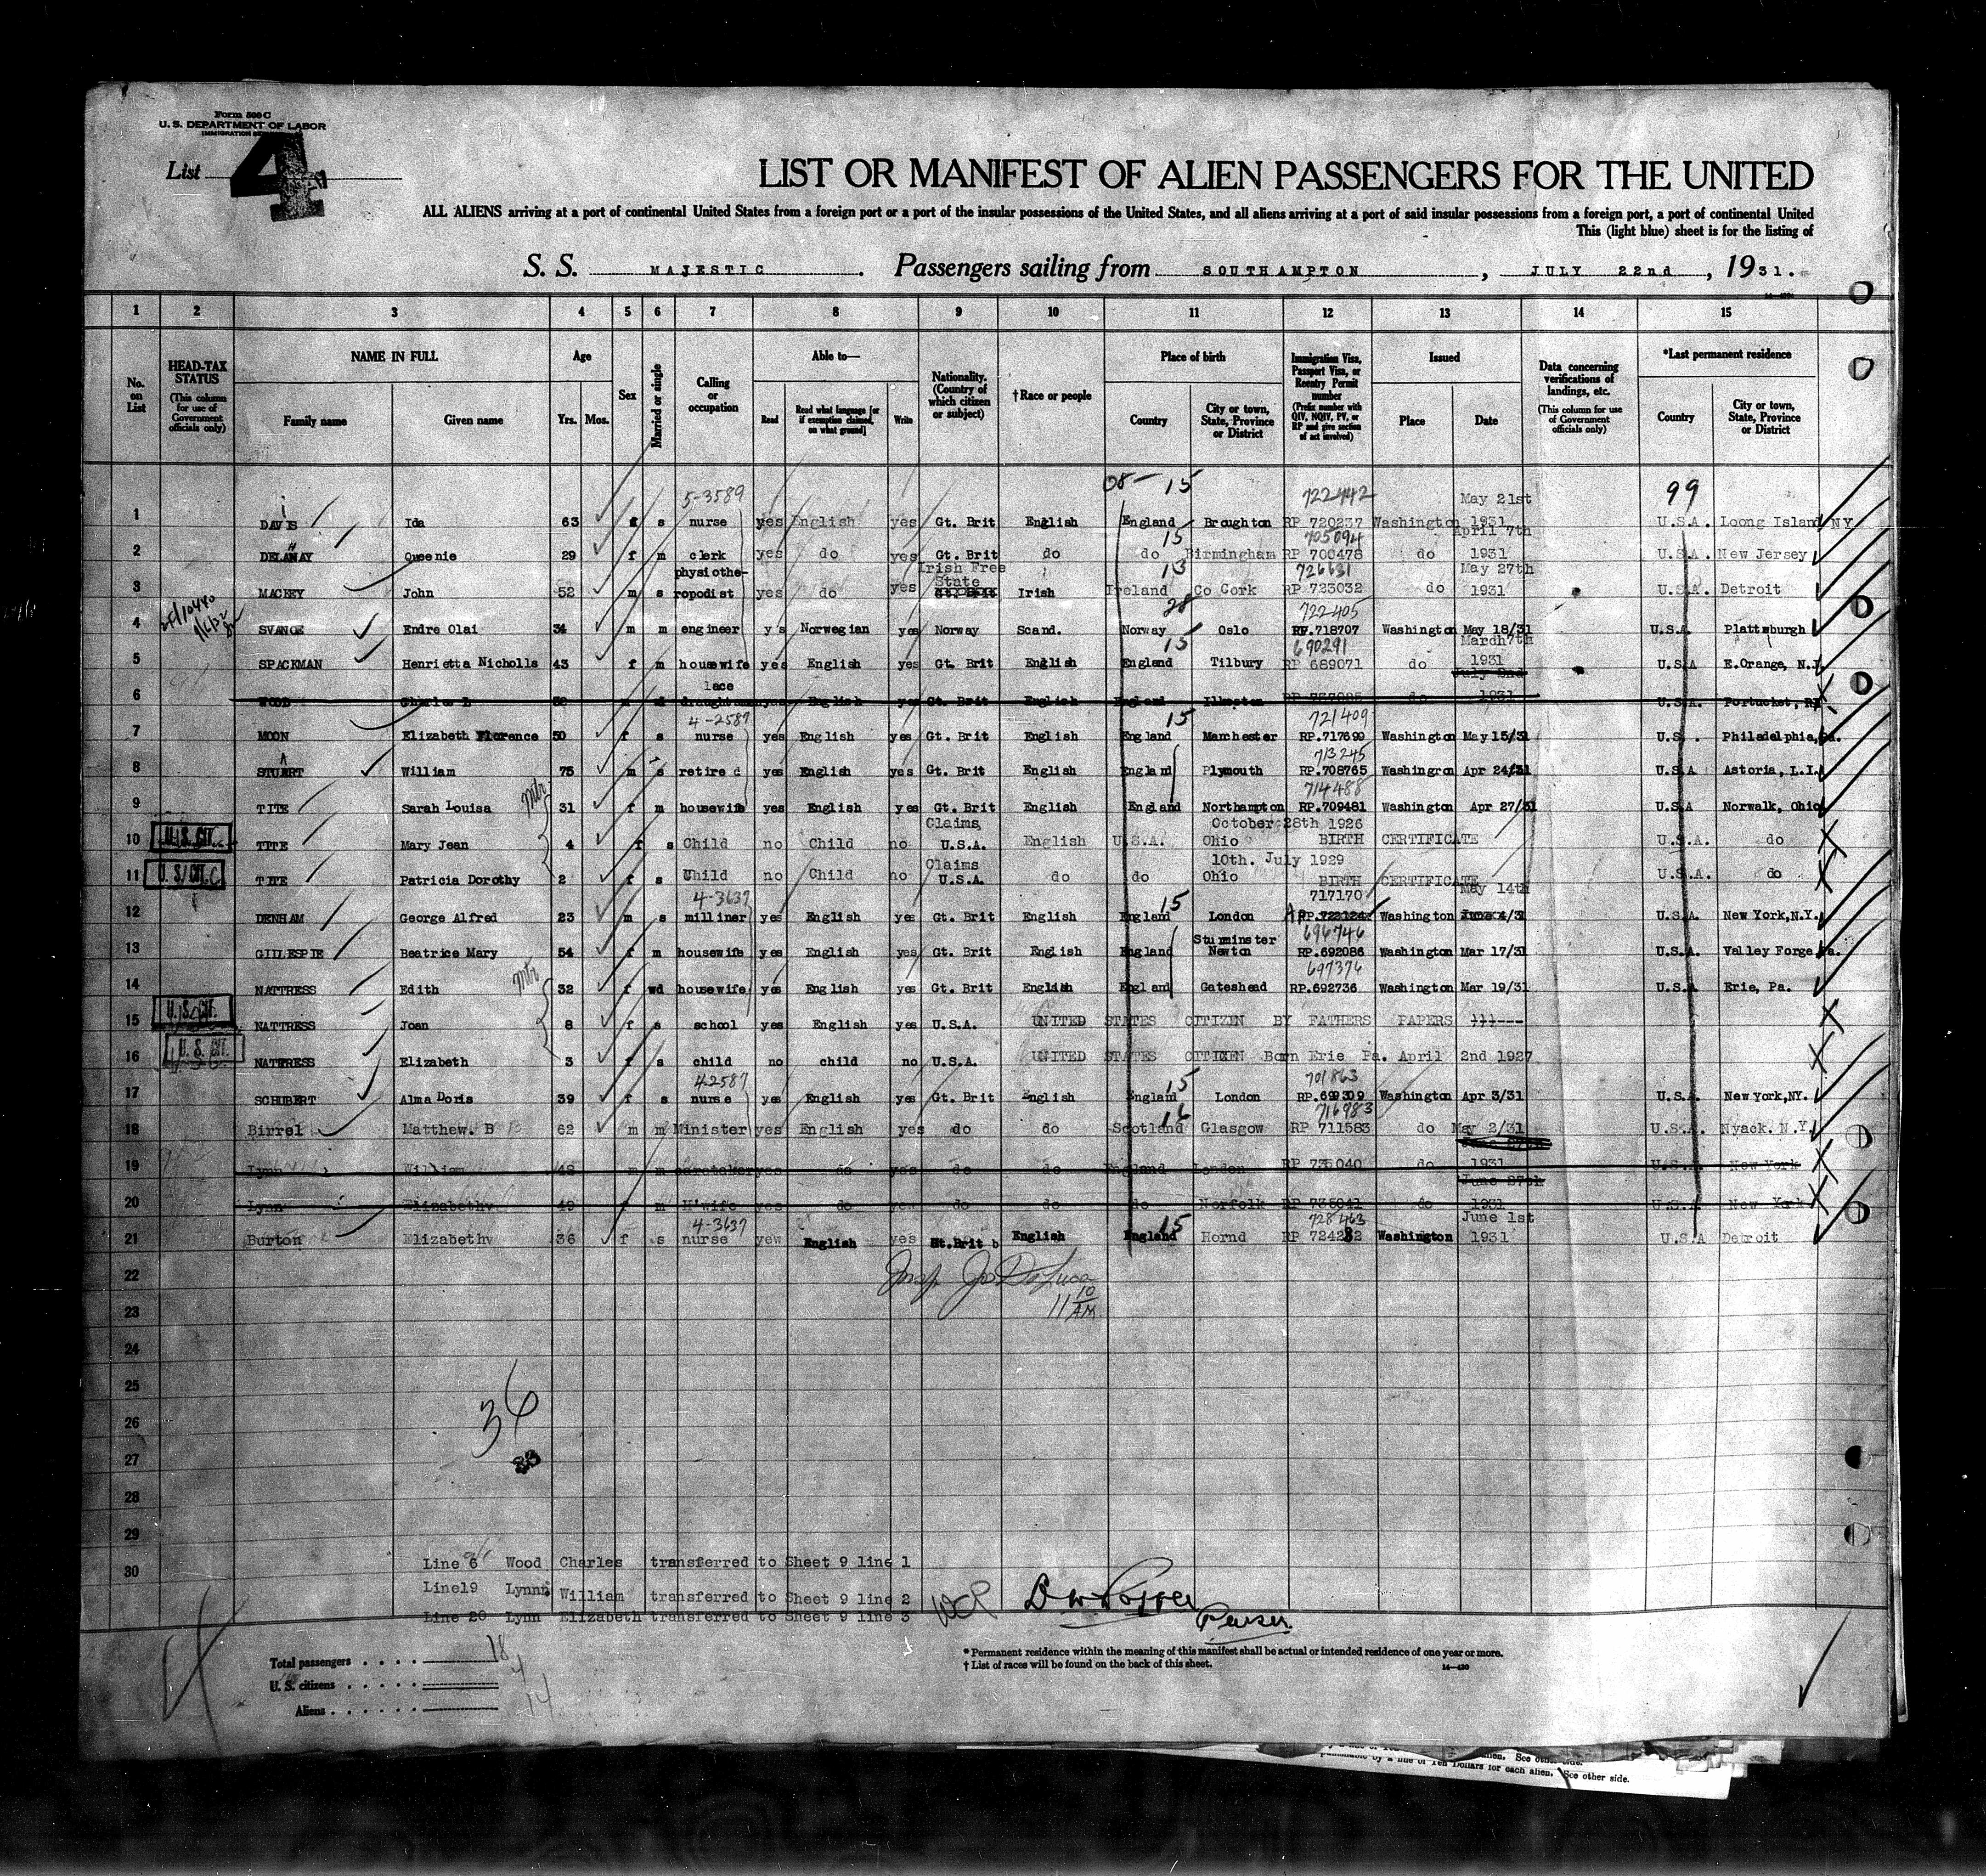 Form 500 C
U. S. DEPARTMENT OF LABOR
List 4
LIST OR MANIFEST OF ALIEN PASSENGERS FOR THE UNITED
ALL ALIENS arriving at a port of continental United States from a foreign port or a port of the insular possessions of the United States, and all aliens arriving at a port of said insular possessions from a foreign port, a port of continental United
This (light blue) sheet is for the listing of
S. S. MAJESTIC. Passengers sailing from SOUTHAMPTON, JULY 22nd, 1931.
1 2 3 4 5 6 7 8 9 10 11 12 13 14 15
No. on List
HEAD-TAX STATUS (This column for use of Government officials only)
NAME IN FULL
Family name Given name
Age
Yrs. Mos.
Sex
Married or single
Calling or occupation
Able to—
Read Read what language [or if exemption claimed, on what ground] Write
Nationality. (Country of which citizen or subject)
†Race or people
Place of birth
Country City or town, State, Province or District
Immigration Visa, Passport Visa, or Reentry Permit number (Prefix number with QIV, NQIV, PV, or RP and give section of act involved)
Issued
Place Date
Data concerning verifications of landings, etc. (This column for use of Government officials only)
*Last permanent residence
Country City or town, State, Province or District
08- 15 99
5-3589 722442 May 21st
1 DAVIS Ida 63 f s nurse yes English yes Gt. Brit English England Broughton RP 720237 Washington 1931 U.S.A. Loong Island NY
15 705094 April 7th
2 DELAWAY Queenie 29 f m clerk yes do yes Gt. Brit do do Birmingham RP 700478 do 1931 U.S.A. New Jersey
physiothe- Irish Free 13 726631 May 27th
3 MACKEY John 52 m s ropodist yes do yes State Gt. Brit Irish Ireland Co Cork RP 723032 do 1931 U.S.A. Detroit
28 722405
4 SVANOE Endre Olai 34 m m engineer y s Norwegian yes Norway Scand. Norway Oslo RP.718707 Washington May 18/31 U.S.A Plattsburgh
15 690291 March 7th
5 SPACKMAN Henrietta Nicholls 43 f m housewife yes English yes Gt. Brit English England Tilbury RP 689071 do 1931 U.S.A E.Orange, N.J.
lace July 2nd
6 WOOD Charles yes English yes Gt. Brit English England do 1931 U.S.A.
4-2587 15 721409
7 MOON Elizabeth Florence 50 f s nurse yes English yes Gt. Brit English England Manchester RP.717699 Washington May 15/31 U.S. . Philadelphia, Pa.
713245
8 STUERT William 75 m s retired yes English yes Gt. Brit English England Plymouth RP.708765 Washingron Apr 24/31 U.S.A Astoria, L.I.
714488
9 TITE Sarah Louisa 31 f m housewife yes English yes Gt. Brit English England Northampton RP.709481 Washington Apr 27/31 U.S.A Norwalk, Ohio
Claims October 28th 1926
U.S. CIT. 10 TITE Mary Jean 4 f s Child no Child no U.S.A. English U.S.A. Ohio BIRTH CERTIFICATE U.S.A. do
Claims 10th. July 1929
U.S. CIT. 11 TITE Patricia Dorothy 2 f s Child no Child no U.S.A. do do Ohio BIRTH CERTIFICATE U.S.A. do
4-3637 15 717170 May 14th
12 DENHAM George Alfred 23 m s milliner yes English yes Gt. Brit English England London RP.722124 Washington June 4/31 U.S.A. New York,N.Y.
Sturminster 696746
13 GILLESPIE Beatrice Mary 54 f m housewife yes English yes Gt. Brit English England Newton RP.692086 Washington Mar 17/31 U.S.A. Valley Forge Pa.
697376
14 NATTRESS Edith 32 f wd housewife yes English yes Gt. Brit English England Gateshead RP.692736 Washington Mar 19/31 U.S.A Erie, Pa.
U.S. CIT. 15 NATTRESS Joan 8 f s school yes English yes U.S.A. UNITED STATES CITIZEN BY FATHERS PAPERS
U. S. CIT. 16 NATTRESS Elizabeth 3 f s child no child no U.S.A. UNITED STATES CITIZEN Born Erie Pa. April 2nd 1927
42587 15 701863
17 SCHUBERT Alma Doris 39 f s nurse yes English yes Gt. Brit English England London RP.699309 Washington Apr 3/31 U.S.A New York,NY.
16 716983
18 Birrel Matthew. B 62 m m Minister yes English yes do do Scotland Glasgow RP 711583 do May 2/31 U.S.A. Nyack. N.Y.
19 Lynn William 48 m m caretaker yes do yes do do England London RP 735040 do 1931 U.S.A. New York
June 27th
20 Lynn Elizabethv 49 f m H'wife yes do yes do do do Norfolk RP 735041 do 1931 U.S.A. New York
4-3637 15 728463 June 1st
21 Burton Elizabethv 36 f s nurse yew English yes Gt.Brit b English England Hornd RP 724282 Washington 1931 U.S.A Detroit
22
11 10 AM
23
24
25
36
26
27
28
29
30
Line 6 Wood Charles transferred to Sheet 9 line 1
Line19 Lynn William transferred to Sheet 9 line 2
Line 20 Lynn Elizabeth transferred to Sheet 9 line 3
Purser
Total passengers . . . . 18
U. S. citizens . . . . 4
Aliens . . . . . . 14
* Permanent residence within the meaning of this manifest shall be actual or intended residence of one year or more.
† List of races will be found on the back of this sheet.
alien. See other side.
punishable by a fine of Ten Dollars for each alien. See other side.